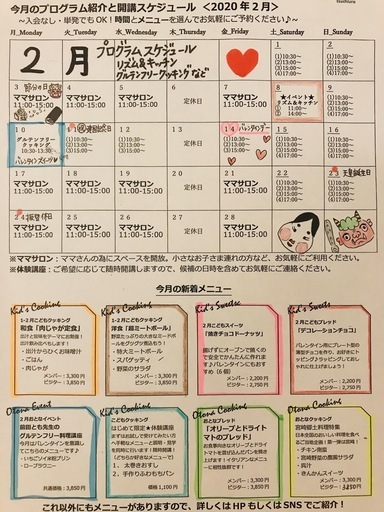 今月のプログラム紹介と開講スケジュール <2020年2月>
～入会なし・単発でもOK！時間とメニューを選んでお気軽にご予約ください♪～
月_Monday 火_Tuesday 水_Wednesday 木_Thursday 金_Friday 土_Saturday 日_Sunday
2月
プログラムスケジュール
リズム&キッチン
グルテンフリークッキング など
1
(1)10:30～
(2)13:00～
(3)15:00～
(4)17:00～
2
(1)10:30～
(2)13:00～
(3)15:00～
(4)17:00～
3 節分の日
ママサロン
11:00-15:00
4
ママサロン
11:00-15:00
5
ママサロン
11:00-15:00
6
定休日
7
ママサロン
11:00-15:00
8
★イベント★
リズム&キッチン
11:00～
14:00～
9
(1)10:30～
(2)13:00～
(3)15:00～
(4)17:00～
10
グルテンフリー
クッキング
10:30-13:30
バレンタインスイーツ
11 建国記念日
(1)10:30～
(2)13:00～
(3)15:00～
(4)17:00～
12
ママサロン
11:00-15:00
13
定休日
14 バレンタインデー
ママサロン
11:00-15:00
15
(1)10:30～
(2)13:00～
(3)15:00～
(4)17:00～
16
(1)10:30～
(2)13:00～
(3)15:00～
(4)17:00～
17
ママサロン
11:00-15:00
18
ママサロン
11:00-15:00
19
ママサロン
11:00-15:00
20
定休日
21
ママサロン
11:00-15:00
22
(1)10:30～
(2)13:00～
(3)15:00～
(4)17:00～
23 天皇誕生日
(1)10:30～
(2)13:00～
(3)15:00～
(4)17:00～
24 振替休日
ママサロン
11:00-15:00
25
ママサロン
11:00-15:00
26
ママサロン
11:00-15:00
27
定休日
28
ママサロン
11:00-15:00
※ママサロン：ママさんの為にスペースを開放。小さなお子さま連れの方など、お気軽にご利用ください。
※体験講座：ご希望に応じて随時開講しますので、候補の日時を含めてお気軽にご連絡ください。
今月の新着メニュー
Kid's Cooking
1-2月こどもクッキング
和食「肉じゃが定食」
・出汁からひくお味噌汁
・ごはん
・肉じゃが
メンバー：3,300円
ビジター：3,850円
Kid's Cooking
1-2月こどもクッキング
洋食「超ミートボール」
・特大ミートボール
・スパゲッティ
・野菜のサラダ
メンバー：3,300円
ビジター：3,850円
Kid's Sweets
2月こどもスイーツ
「焼きチョコドーナッツ」
揚げずにオーブンで焼くので安全でかんたんに作れますよ！バレンタインにもおすすめ（6個）
メンバー：2,200円
ビジター：2,750円
Kid's Cooking
2月こどもブレッド
「デコレーションチョコ」
メンバー：2,200円
ビジター：2,750円
Otona Event
2月おとなイベント
前田とも先生の
グルテンフリー料理講座
・ローブラウニー
共通価格：3,850円
Kid's Cooking
こどもクッキング
はじめて限定★体験講座
1、太巻きおすし
2、手作りふわもちパン
価格：1,100円
Otona Cooking
おとなブレッド
「オリーブとドライトマトのブレッド」
メンバー：3,300円
ビジター：3,850円
Otona Cooking
おとなクッキング
宮崎郷土料理特集
・チキン南蛮
・宮崎野菜の南蛮サラダ
・呉汁
・きんかんスイーツ
メンバー：3,300円
ビジター：3,850円
これ以外にもメニューがありますので、詳しくはHPもしくはSNSでご紹介！